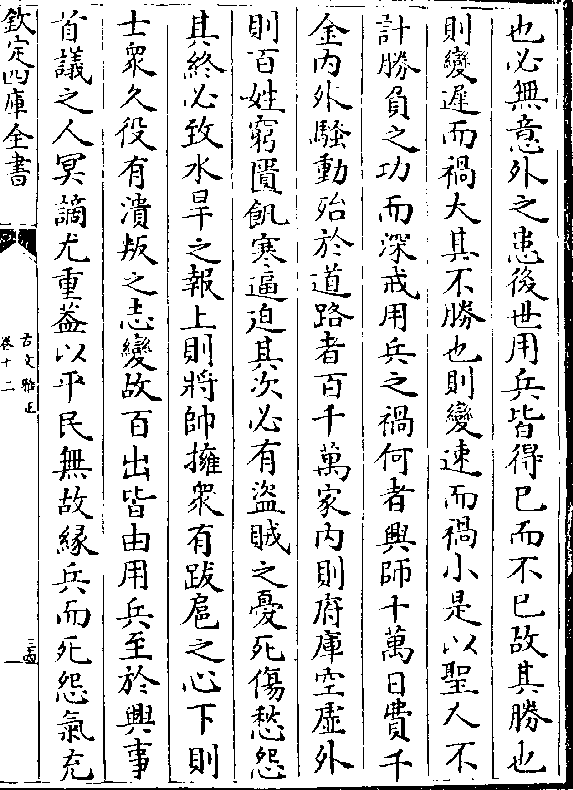 也必無意外之患後世用兵皆得已而不已故其勝也
則變遲而禍大其不勝也則變速而禍小是以聖人不
計勝負之功而深戒用兵之禍何者興師十萬日費千
金內外騷動殆於道路者百千萬家內則府庫空虛外
則百姓窮匱飢寒逼迫其次必有盜賊之憂死傷愁怨
其終必致水旱之報上則將帥擁衆有跋扈之心下則
士衆久役有潰叛之志變故百出皆由用兵至於興事
首議之人冥謫尤重葢以平民無故緣兵而死怨氣充
欽定四庫全書
古文雅正
卷十二